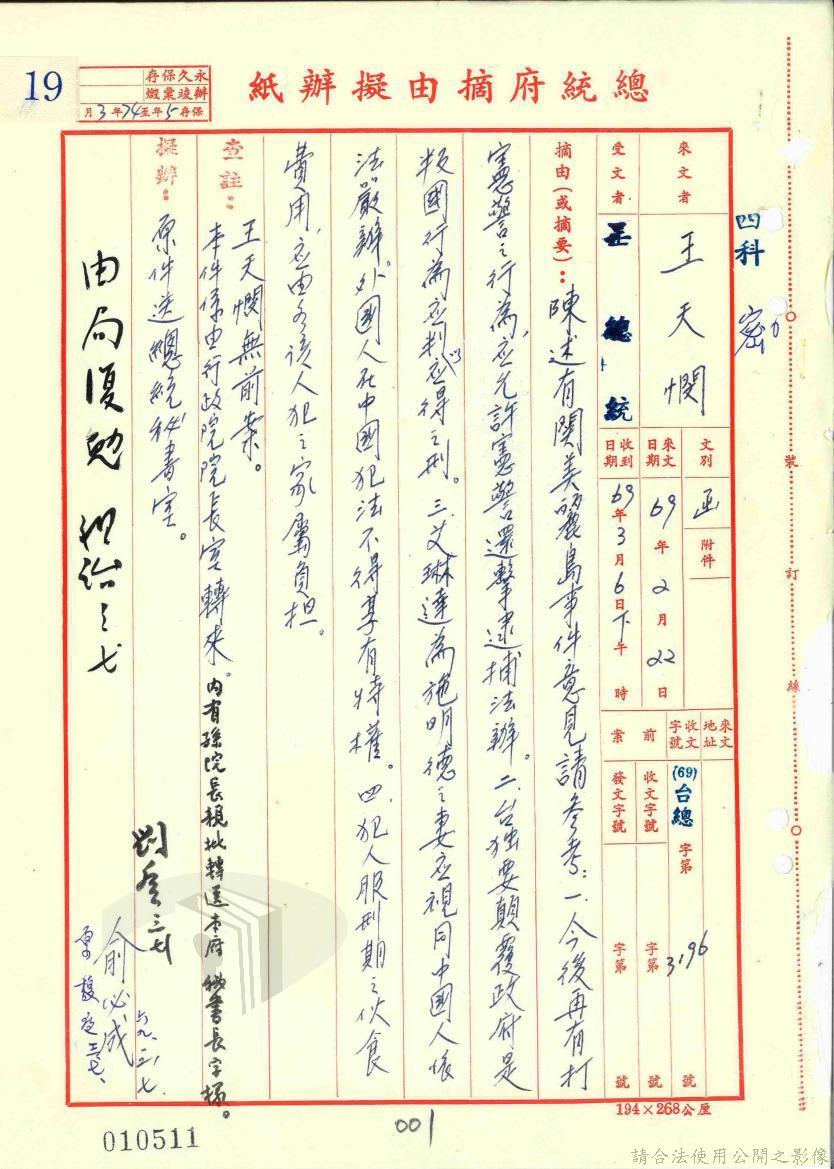 19
永久保存
辦竣稟燬
保存5年至74年3月
總統府摘由擬辦紙
四科
密
來文者
王天憫
受文者
總統
文別
函
附件
來文日期
69年2月22日
收到日期
69年3月6日下午 時
來文地址
收文字號
(69)台總字第3196號
前案
收文字號 字第 號
發文字號 字第 號
摘由(或摘要):
陳述有關美麗島事件意見請參考:一、今後再有打
憲警之行為,應允許憲警還擊逮捕法辦。二、台獨要顛覆政府是
叛國行為應判應得之刑。三、艾琳達為施明德之妻應視同中國人依
法嚴辦。外國人在中國犯法不得享有特權。四、犯人服刑期之伙食
費用,應由各該人犯之家屬負担。
查註:
王天憫無前案。
本件係由行政院院長室轉來。內有孫院長親批轉送本府秘書長字樣。
擬辦:
原件送總統秘書室。
由局復勉
三七
俞必成
六九、三、七
裝
訂
線
194×268公厘
010511
001
請合法使用公開之影像